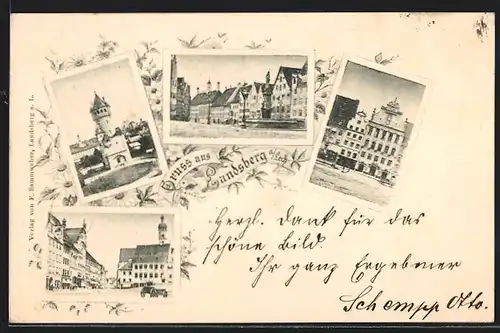 Verlag von F. Sannwalder, Landsberg a. L.
Gruss aus
Landsberg a/Lech
Herzl. Dank für das
schöne Bild
Ihr ganz Ergebener
Schempp Otto.